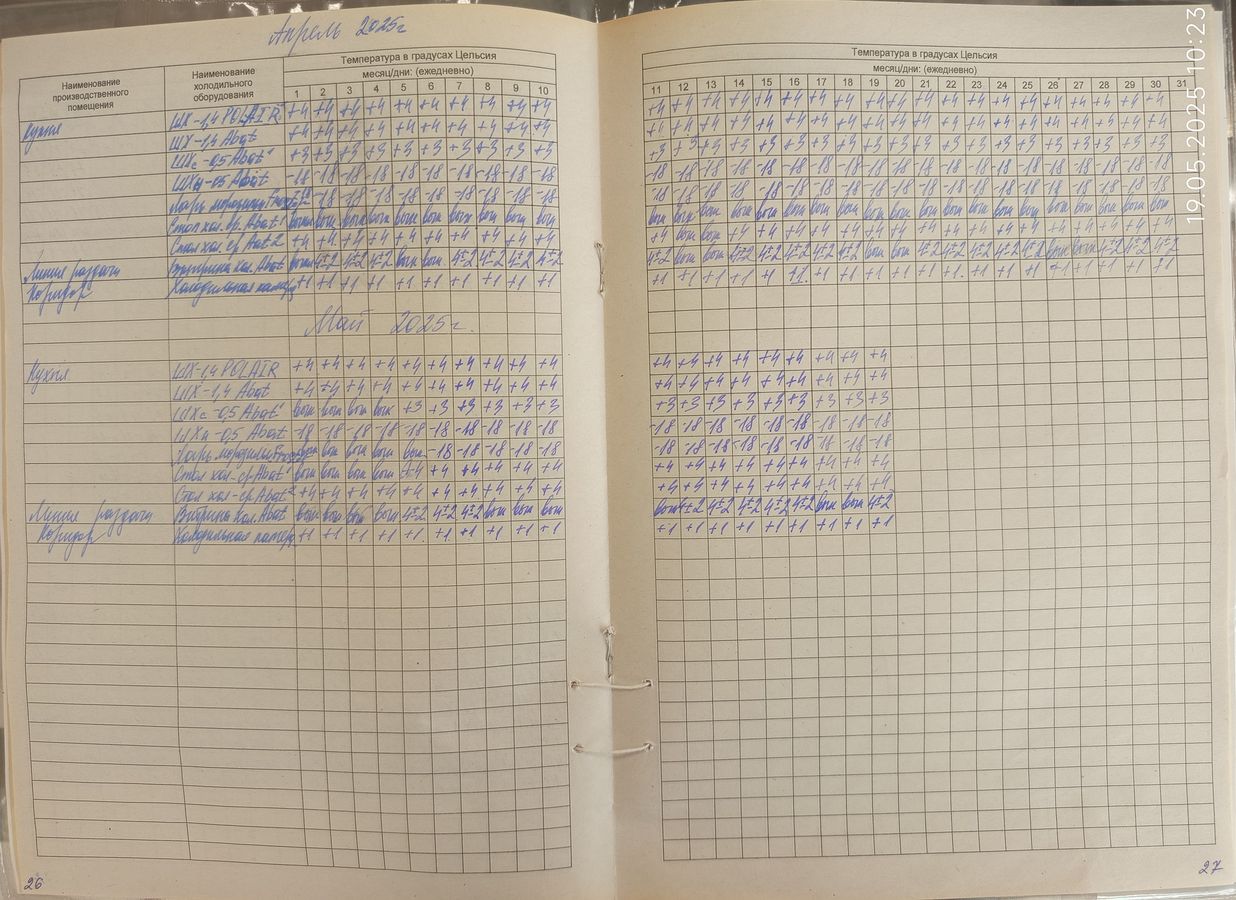 Апрель 2025г
Наименование производственного помещения
Наименование холодильного оборудования
Температура в градусах Цельсия
месяц/дни: (ежедневно)
1 2 3 4 5 6 7 8 9 10
Кухня ШХ-1,4 POLAIR +4 +4 +4 +4 +4 +4 +4 +4 +4 +4
ШХ-1,4 Abat +4 +4 +4 +4 +4 +4 +4 +4 +4 +4
ШХс-0,5 Abat +3 +3 +3 +3 +3 +3 +3 +3 +3 +3
-0,5 Abat -18 -18 -18 -18 -18 -18 -18 -18 -18 -18
Ларь -18 -18 -18 -18 -18 -18 -18 -18 -18
Стол хол. ср. Abat
Стол хол. ср. Abat 2 +4 +4 +4 +4 +4 +4 +4 +4 +4 +4
Линия раздачи Витрина хол. Abat 4±2 4±2 4±2 4±2 4±2 4±2 4±2
Коридор Холодильная камера +1 +1 +1 +1 +1 +1 +1 +1 +1 +1
Май 2025г.
Кухня ШХ-1,4 POLAIR +4 +4 +4 +4 +4 +4 +4 +4 +4 +4
ШХ-1,4 Abat +4 +4 +4 +4 +4 +4 +4 +4 +4 +4
ШХс-0,5 Abat +3 +3 +3 +3 +3 +3
-0,5 Abat -18 -18 -18 -18 -18 -18 -18 -18 -18 -18
Ларь -18 -18 -18 -18 -18
Стол хол-ср. Abat +4 +4 +4 +4 +4 +4
Стол хол-ср. Abat 2 +4 +4 +4 +4 +4 +4 +4 +4 +4 +4
Линия раздачи Витрина хол. Abat 4±2 4±2 4±2
Коридор Холодильная камера +1 +1 +1 +1 +1 +1 +1 +1 +1 +1
26
Температура в градусах Цельсия
месяц/дни: (ежедневно)
11 12 13 14 15 16 17 18 19 20 21 22 23 24 25 26 27 28 29 30 31
+4 +4 +4 +4 +4 +4 +4 +4 +4 +4 +4 +4 +4 +4 +4 +4 +4 +4 +4 +4
+4 +4 +4 +4 +4 +4 +4 +4 +4 +4 +4 +4 +4 +4 +4 +4 +4 +4 +4 +4
+3 +3 +3 +3 +3 +3 +3 +3 +3 +3 +3 +3 +3 +3 +3 +3 +3 +3 +3 +3
-18 -18 -18 -18 -18 -18 -18 -18 -18 -18 -18 -18 -18 -18 -18 -18 -18 -18 -18 -18
-18 -18 -18 -18 -18 -18 -18 -18 -18 -18 -18 -18 -18 -18 -18 -18 -18 -18 -18 -18
+4 +4 +4 +4 +4 +4 +4 +4 +4 +4 +4 +4 +4 +4 +4 +4 +4 +4
4±2 4±2 4±2 4±2 4±2 4±2 4±2 4±2 4±2 4±2 4±2 4±2 4±2 4±2
+1 +1 +1 +1 +1 +1 +1 +1 +1 +1 +1 +1 +1 +1 +1 +1 +1 +1 +1 +1
+4 +4 +4 +4 +4 +4 +4 +4 +4
+4 +4 +4 +4 +4 +4 +4 +4 +4
+3 +3 +3 +3 +3 +3 +3 +3 +3
-18 -18 -18 -18 -18 -18 -18 -18 -18
-18 -18 -18 -18 -18 -18 -18 -18 -18
+4 +4 +4 +4 +4 +4 +4 +4 +4
+4 +4 +4 +4 +4 +4 +4 +4 +4
4±2 4±2 4±2 4±2 4±2 4±2
+1 +1 +1 +1 +1 +1 +1 +1 +1
27
19.05.2025 10:23